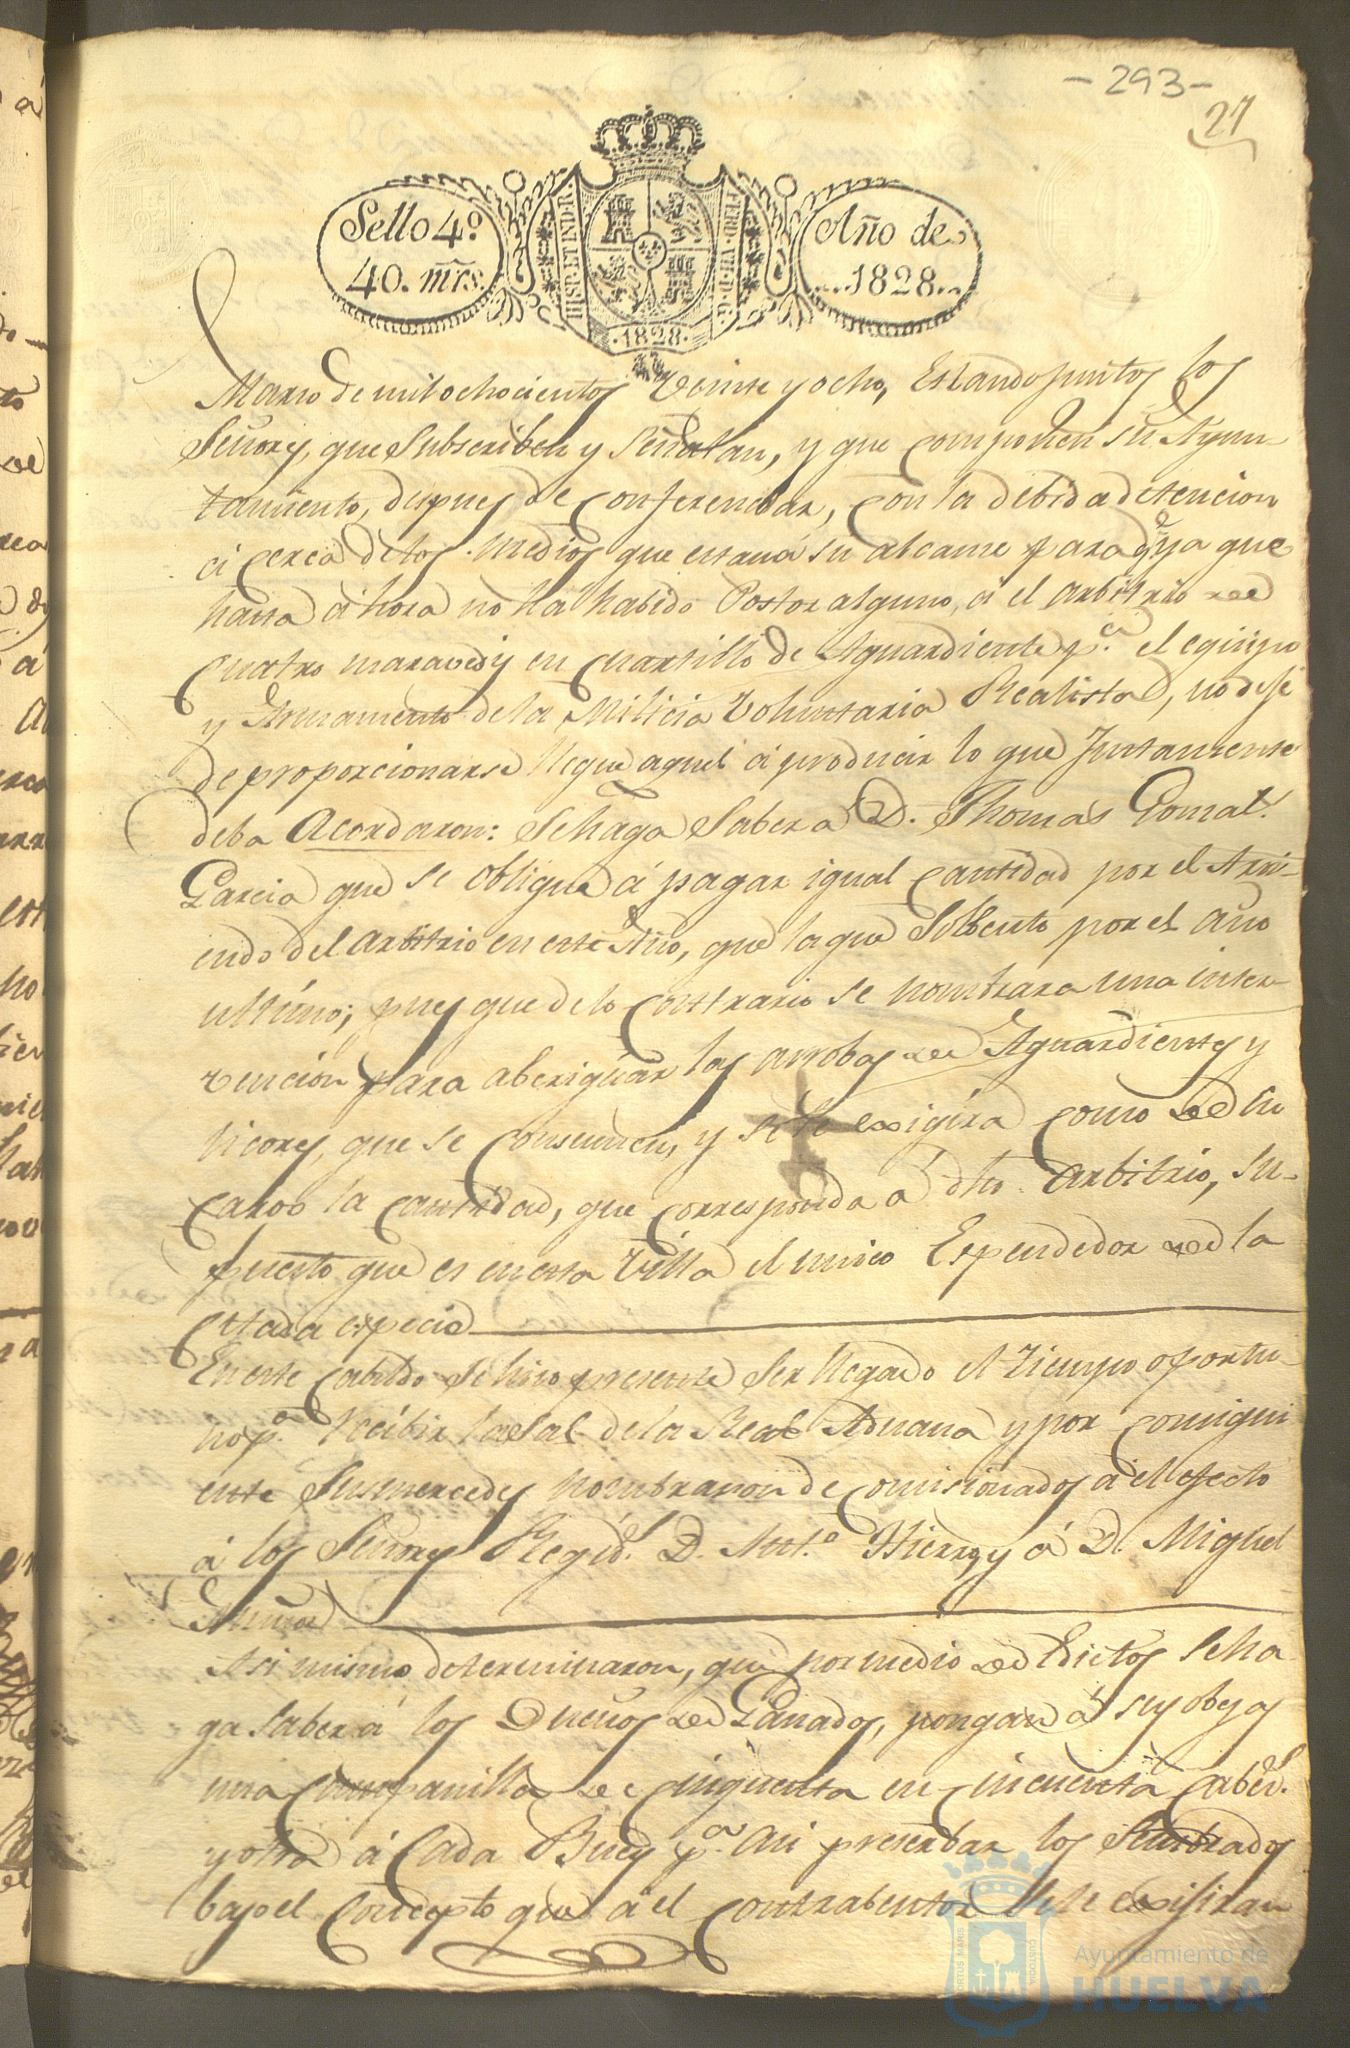 - 293 -
27
Sello 4º.
40. mrs.
HISP. ET IND. R.
FERD. VII. D. G.
·1828·
Año de
1828.
Marzo de mil ochocientos Veinte y ocho, Estando juntos los
Señores, que Subscriben y Señalan, y que componen su Ayun-
tamiento, despues de conferenciar, con la debida detencion
á cerca de los medios que estan á su alcance para qe. ya que
hasta áhora no há habido Postor alguno, á el arbitrio de
cuatro maravedis en cuartillo de Aguardiente pa. el equipo
y Armamento de la Milicia Voluntaria Realista, no deje
de proporcionarse llegue aquel á producir lo que Justamente
deba Acordaron: Se haga Saber a D. Thomas Gonzal.
Garcia que se obligue á pagar igual cantidad por el Arri-
endo del arbitrio en este Año, que la que Solbento por el año
ultimo; pues que de lo contrario se nombrara una inter-
vencion para aberiguar las arrobas de Aguardientes y
licores, que se consumen, y se le exigira como de su
cargo la cantidad, que corresponda á dho. arbitrio, su-
puesto que es en esta Villa el unico Expendedor de la
citada especie
En este Cabildo se hizo presente Ser llegado el Tiempo oportu-
no pa. Recibir la Sal de la Real Aduana y por consigui
ente Sus mercedes nombraron de comisionados á el efecto
á los Señores Regid.s D. Ant.o Hierro, y á D. Miguel
Asi mismo determinaron, que por medio de Edictos Se ha
ga saber á los Dueños de Ganados, pongan á sus obejas
una campanilla de cinquenta en cincuenta cabez.s
y otra á Cada Buey pa. asi preserbar los Sembrados
bajo el Concepto que á el contrabentor Se le exijiran
Ayuntamiento de
HUELVA
PORTUS MARIS
CUSTODIA